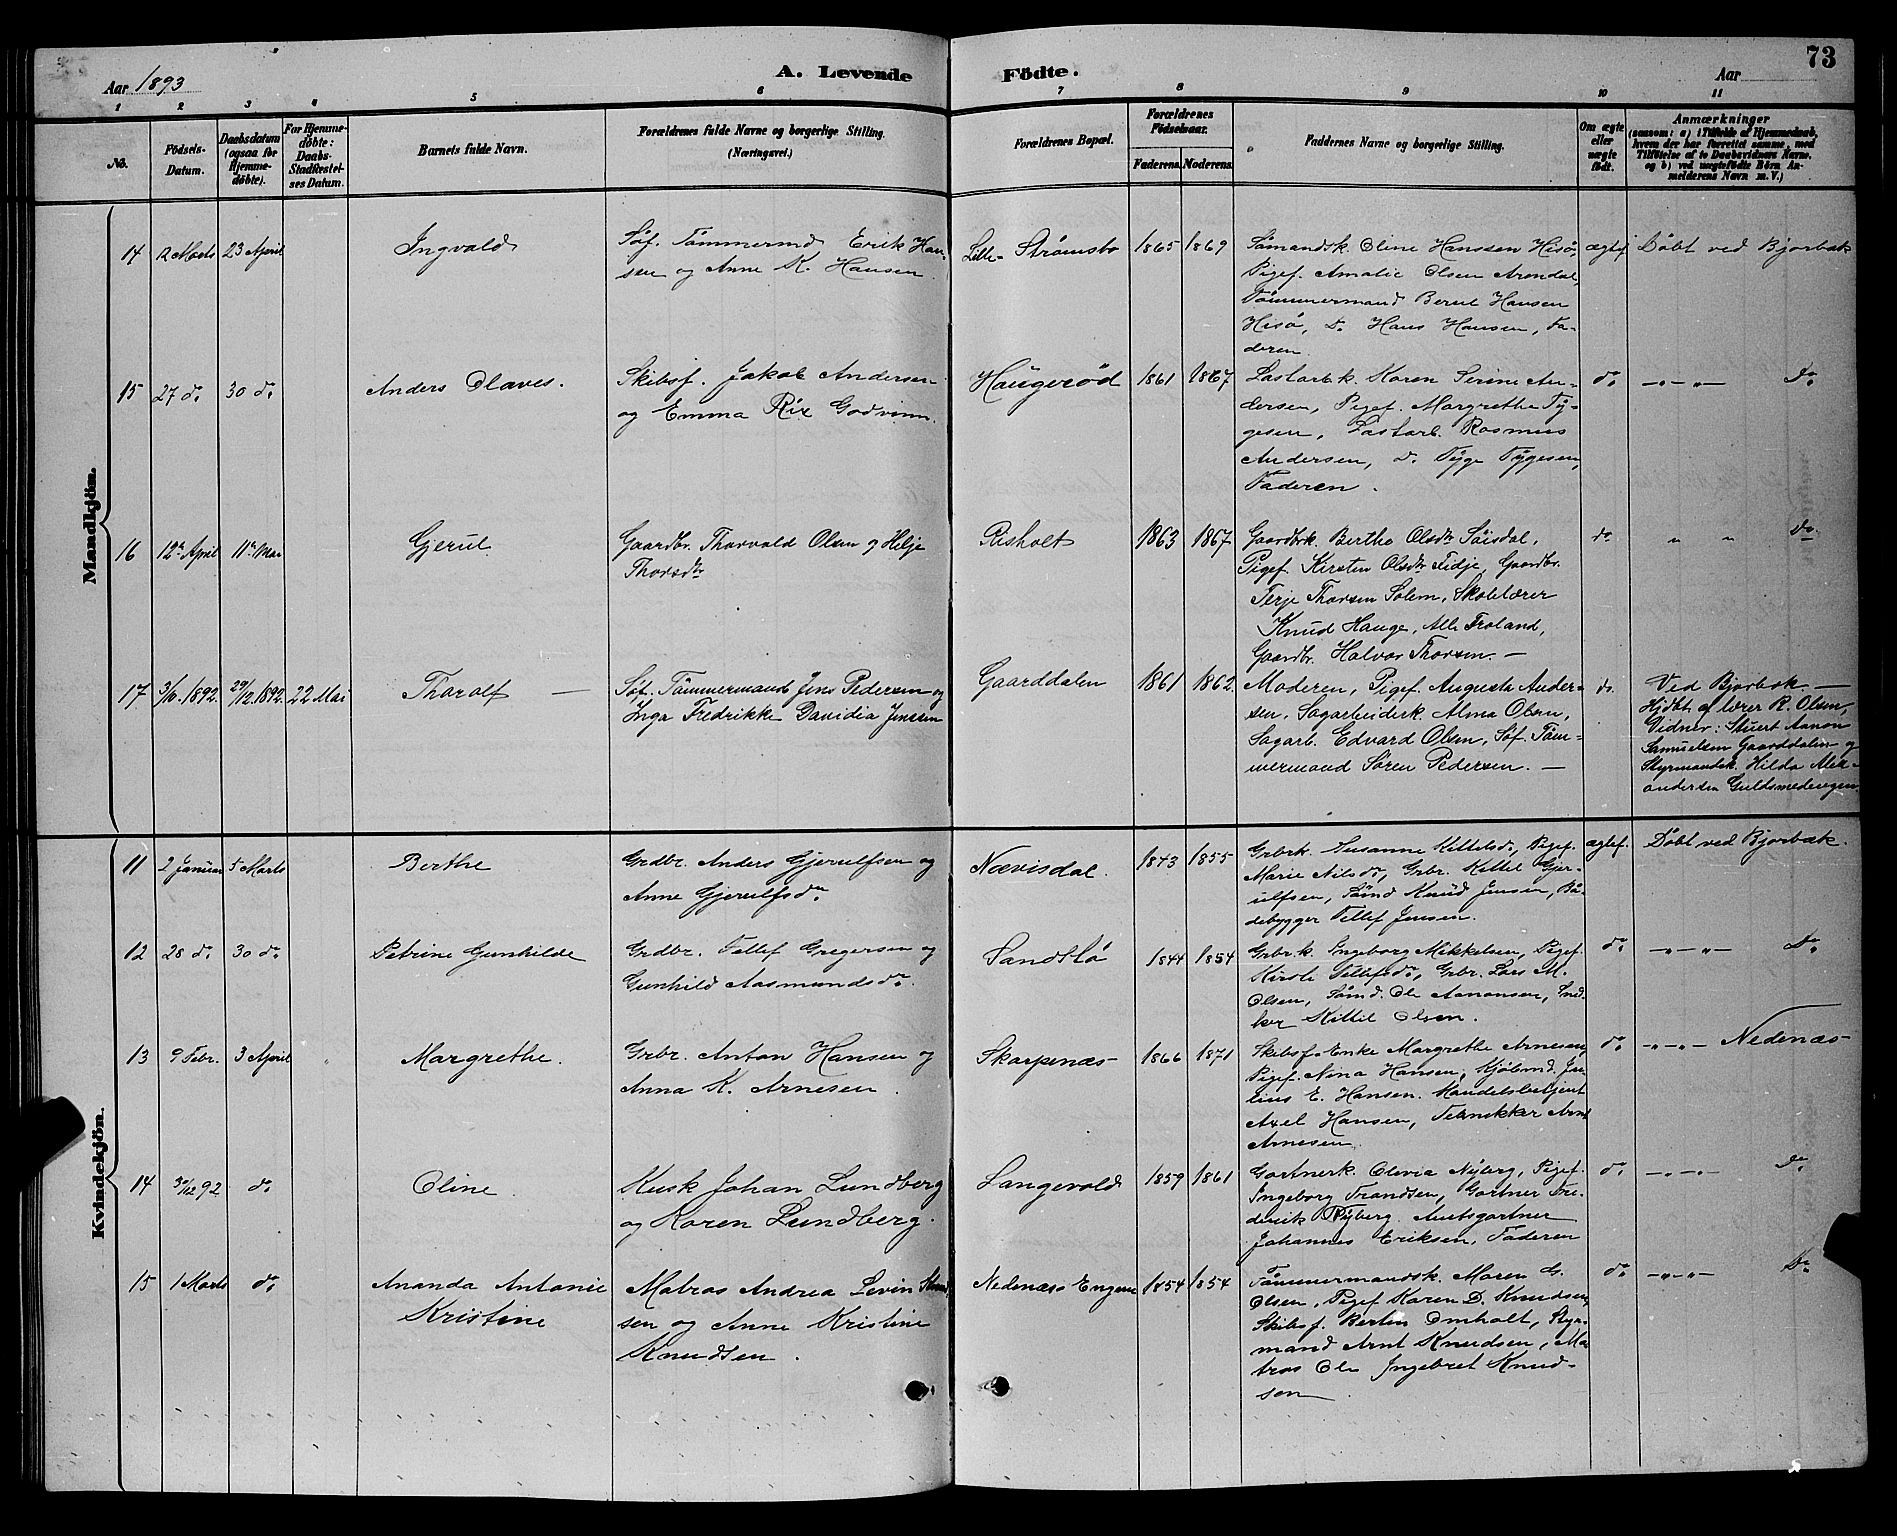 73
Aar 1893
A. Levende Fødte.
Aar
1 2 3 4 5 6 7 8 9 10 11
No.
Fødsels-
Datum.
Daabsdatum
(ogsaa for
Hjemme-
døbte).
For Hjemme-
døbte:
Daabs-
Stadfæstel-
ses Datum.
Barnets fulde Navn.
Forældrenes fulde Navne og borgerlige Stilling.
(Næringsvei.)
Forældrenes Bopæl.
Forældrenes
Fødselsaar.
Faderens. Moderens.
Faddernes Navne og borgerlige Stilling.
Om ægte
eller
uægte
født.
Anmærkninger
(saasom: a) i Tilfælde af Hjemmedaab,
hvem der har forrettet samme, med
Tilføielse af to Daabsvidners Navne,
og b) ved uægtefødte Børn An-
melderens Navn m. V.)
Mandkjøn.
14 12 Marts 23 April
Ingvald
Søf. Tømmermd Erik Han-
sen og Anne K. Hansen
Lille-Strømsbo
1865 1869
Sømandsk. Oline Hanssen Hisø,
Pigef. Amalie Olsen Arendal,
Tømmermand Bernt Hansen
Hisø, Do Hans Hansen, Fa-
deren.
ægtef.
Døbt ved Bjorbæk
15 27 do 30 do
Anders Olaves.
Skibsf. Jakob Andersen
og Emma Rix Godvinn.
Haugerød
1861 1867
Lastarbk. Karen Serine An-
dersen, Pigef. Margrethe Ty-
gesen, Lastarb. Rasmus
Andersen, Do Tyge Tygesen,
Faderen.
do
—„—„— Do
16 12te April 11te Mai
Gjerul
Gaardbr. Thorvald Olsen og Helje
Thorsdtr
Risholt
1863 1867
Gaardbrk. Berthe Olsdtr Løisdal,
Pigef. Kirsten Olsdtr Fidje, Gaardbr.
Terje Thorsen Solem, Skolelærer
Knud Hauge, Alle Froland,
Gaardbr. Halvor Thorsen. —
do
„ „ Do
17 29/12.1892. 22 Mai
Tharolf —
Søf. Tømmermand Jens Pedersen og
Inga Fredrikke Davidia Jenssen
Gaarddalen
1861 1862.
Moderen, Pigef. Augusta Ander-
sen, Sagarbeiderk. Alma Olsen,
Sagarb. Edvard Olsen, Søf. Tøm-
mermand Søren Pedersen. —
do.
Ved Bjorbæk. —
Hjdbt af lærer R. Olsen,
Vidner: Stuert Aanon
Samuelsen Gaarddalen og
Styrmandsk. Hilda Alex-
andersen Guldsmedengen
Kvindekjøn.
11 2 Januar 5 Marts
Berthe
Grdbr. Anders Gjerulfsen og
Anne Gjerulfsdtr
Nævisdal.
1843 1855
Grbrk. Susanne Kittelsd, Pigef.
Marie Nilsdtr, Grbr. Kittil Gjer-
ulfsen, Sømd Knud Jensen, Bå-
debygger Tellef Jensen.
ægtef.
Døbt ved Bjorbæk.
12 28 do 30 do
Petrine Gunhilde
Grdbr. Tellef Gregersen og
Gunhild Aasmundsdtr.
Sandslø
1844 1854
Grbrk. Ingeborg Mikkelsen, Pigef.
Kirsti Tellefsdtr, Grbr. Lars M.
Olsen, Sømd. Ole Aanonsen, Sned-
ker Kittil Olsen.
do
—„—„— Do
13 9 Febr. 3 April
Margrethe.
Grbr. Anton Hansen og
Anna K. Arnesen
Skarpenæs
1866 1871
Skibsf. Enke Margrethe Arnesen,
Pigef. Nina Hansen, Kjøbmd. Ju-
lius E. Hansen. Handelsbetjent
Axel Hansen, Tekniker Arnt
Arnesen.
do
—„—„— Nedenæs
14 30/12 92 do
Oline
Kusk Johan Lundberg
og Karen Lundberg.
Langevold
1859 1861
Gartnerk. Olevia Nyberg, Pigef.
Ingeborg Trandsen, Gartner Fre-
derik Nyberg. Amtsgartner
Johannes Eriksen, Faderen
do
—„—„— Do
15 1 Marts do
Ananda Antonie
Kristine
Matros Andrea Levin Knud-
sen og Anne Kristine
Knudsen.
Nedenæs Engene
1854 1854
Tømmermandsk. Maren G.
Olsen, Pigef Karen D. Knudsen,
Skibsf. Bertin Omholt, Styr-
mand Arnt Knudsen, Ma-
tros Ole Ingebret Knud-
sen.
do
—„—„— Do